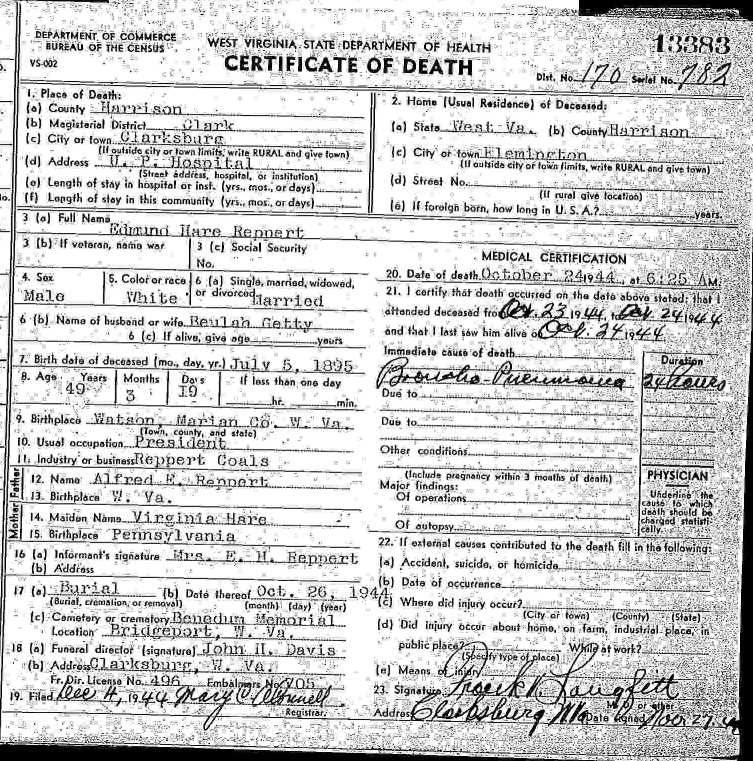 13383
DEPARTMENT OF COMMERCE
BUREAU OF THE CENSUS
VS-002
WEST VIRGINIA STATE DEPARTMENT OF HEALTH
CERTIFICATE OF DEATH
Dist. No. 170 Serial No. 782
1. Place of Death:
(a) County Harrison
(b) Magisterial District Clark
(c) City or town Clarksburg
(If outside city or town limits, write RURAL and give town)
(d) Address U. P. Hospital
(Street address, hospital, or institution)
(e) Length of stay in hospital or inst. (yrs., mos., or days)
(f) Length of stay in this community (yrs., mos., or days)
2. Home (Usual Residence) of Deceased:
(a) State West Va. (b) County Harrison
(c) City or town Flemington
(If outside city or town limits, write RURAL and give town)
(d) Street No.
(If rural give location)
(e) If foreign born, how long in U. S. A.? years.
3 (a) Full Name
Edmund Hare Reppert
3 (b) If veteran, name war
3 (c) Social Security
No.
4. Sex
Male
5. Color or race
White
6 (a) Single, married, widowed,
or divorced Married
6 (b) Name of husband or wife Beulah Getty
6 (c) If alive, give age years
7. Birth date of deceased (mo., day, yr.) July 5, 1895
8. Age Years
49
Months
3
Days
19
If less than one day
hr. min.
9. Birthplace Watson, Marian Co. W. Va.
(Town, county, and state)
10. Usual occupation President
11. Industry or business Reppert Coals
Father
12. Name Alfred E. Reppert
13. Birthplace W. Va.
Mother
14. Maiden Name Virginia Hare
15. Birthplace Pennsylvania
16 (a) Informant's signature Mrs. E. H. Reppert
(b) Address
17 (a) Burial (b) Date thereof Oct. 26, 1944
(Burial, cremation, or removal) (month) (day) (year)
(c) Cemetery or crematory Benedum Memorial
Location Bridgeport, W. Va.
18 (a) Funeral director (signature) John H. Davis
(b) Address Clarksburg, W. Va.
Fr. Dir. License No. 496 Embalmers No. 705
19. Filed Dec 4, 1944 Mary C
Registrar.
MEDICAL CERTIFICATION
20. Date of death October 24 1944, at 6:25 AM.
21. I certify that death occurred on the date above stated; that I
attended deceased from Oct. 23 1944, Oct 24 1944
and that I last saw him alive on Oct. 24 1944
Immediate cause of death
Duration
Broncho-Pneumonia 24 hours
Due to
Due to
Other conditions
(Include pregnancy within 3 months of death)
Major findings:
Of operations
Of autopsy
PHYSICIAN
Underline the
cause to which
death should be
charged statisti-
cally.
22. If external causes contributed to the death fill in the following:
(a) Accident, suicide, or homicide
(b) Date of occurrence
(c) Where did injury occur?
(City or town) (County) (State)
(d) Did injury occur about home, on farm, industrial place, in
public place? While at work?
(Specify type of place)
(e) Means of injury
23. Signature Langfitt
M. D. or other
Address Clarksburg W Va Date signed Nov 27